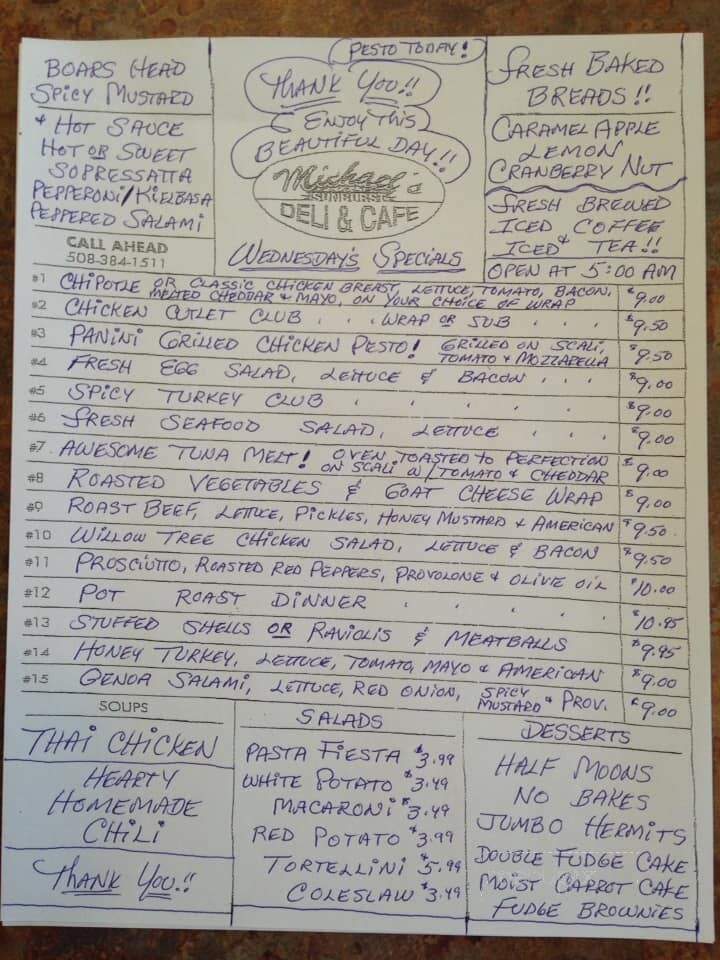 BOARS HEAD
SPICY MUSTARD
& HOT SAUCE
HOT OR SWEET
SOPRESSATTA
PEPPERONI/KIELBASA
PEPPERED SALAMI
CALL AHEAD
508-384-1511
PESTO TODAY!
THANK YOU!!
ENJOY THIS
BEAUTIFUL DAY!!
Michael's
DELI & CAFE
WEDNESDAY'S SPECIALS
FRESH BAKED
BREADS!!
CARAMEL APPLE
LEMON
CRANBERRY NUT
FRESH BREWED
ICED COFFEE
ICED & TEA!!
OPEN AT 5:00 AM
#1 CHIPOTLE OR CLASSIC CHICKEN BREAST, LETTUCE, TOMATO, BACON, MELTED CHEDDAR & MAYO, ON YOUR CHOICE OF WRAP $9.00
#2 CHICKEN CUTLET CLUB . . . WRAP OR SUB . . . $9.50
#3 PANINI GRILLED CHICKEN PESTO! GRILLED ON SCALI, TOMATO & MOZZARELLA $9.50
#4 FRESH EGG SALAD, LETTUCE & BACON . . . $9.00
#5 SPICY TURKEY CLUB . . . . . $9.00
#6 FRESH SEAFOOD SALAD, LETTUCE . . . $9.00
#7 AWESOME TUNA MELT! OVEN TOASTED TO PERFECTION ON SCALI W/TOMATO & CHEDDAR $9.00
#8 ROASTED VEGETABLES & GOAT CHEESE WRAP $9.00
#9 ROAST BEEF, LETTUCE, PICKLES, HONEY MUSTARD & AMERICAN $9.50
#10 WILLOW TREE CHICKEN SALAD, LETTUCE & BACON $9.50
#11 PROSCIUTTO, ROASTED RED PEPPERS, PROVOLONE & OLIVE OIL $10.00
#12 POT ROAST DINNER . . . . . $10.95
#13 STUFFED SHELLS OR RAVIOLIS & MEATBALLS $9.95
#14 HONEY TURKEY, LETTUCE, TOMATO, MAYO & AMERICAN $9.00
#15 GENOA SALAMI, LETTUCE, RED ONION, SPICY MUSTARD & PROV. $9.00
SOUPS
THAI CHICKEN
HEARTY
HOMEMADE
CHILI
THANK YOU!!
SALADS
PASTA FIESTA $3.99
WHITE POTATO $3.49
MACARONI $3.49
RED POTATO $3.99
TORTELLINI $5.99
COLESLAW $3.49
DESSERTS
HALF MOONS
NO BAKES
JUMBO HERMITS
DOUBLE FUDGE CAKE
MOIST CARROT CAKE
FUDGE BROWNIES